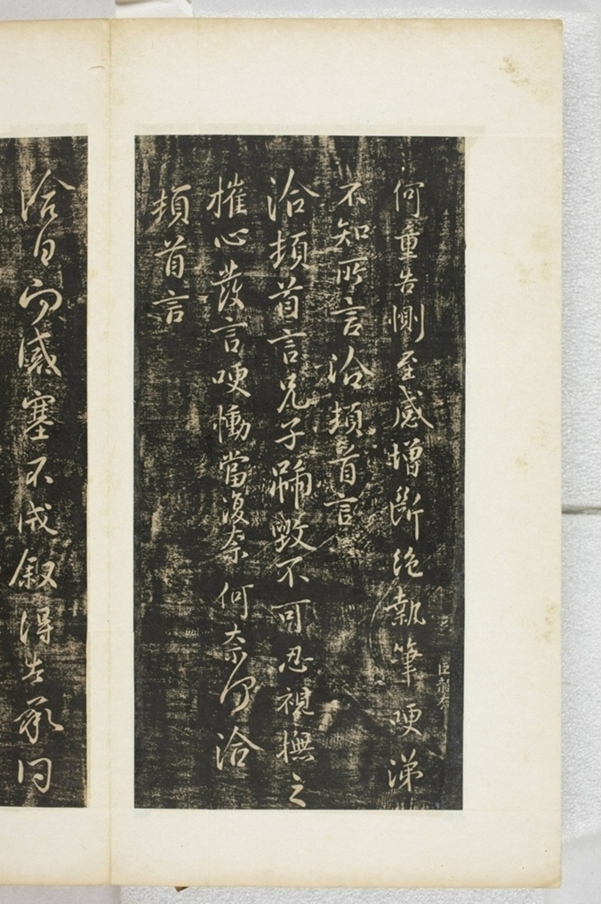 何重告惻至感增斷絶執筆哽涕
不知所言洽頓首言
洽頓首言兄子號毀不可忍視撫之
摧心發言哽慟當復奈何奈何洽
頓首言
洽白感塞不成叙得告承問